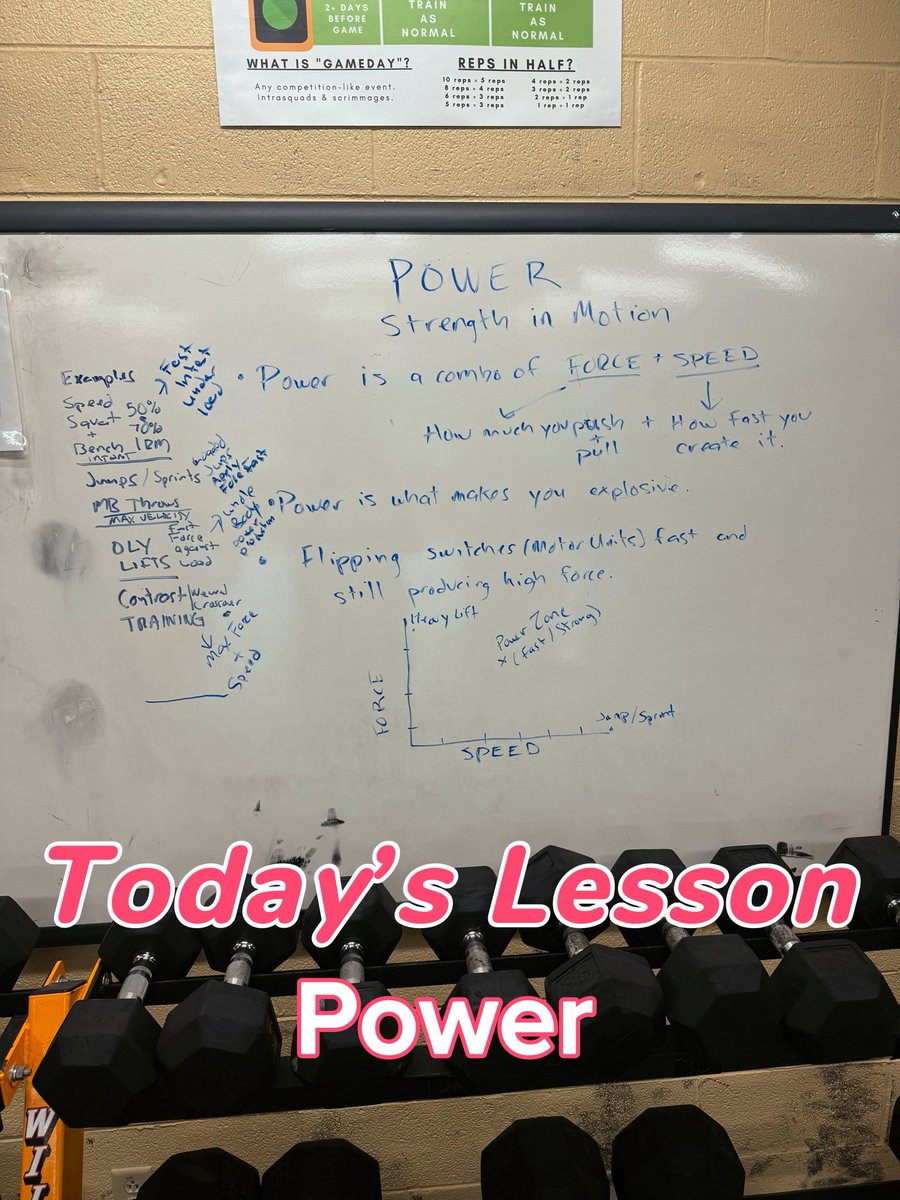 2+ DAYS
BEFORE
GAME
TRAIN
AS
NORMAL
TRAIN
AS
NORMAL
WHAT IS "GAMEDAY"?
Any competition-like event.
Intrasquads & scrimmages.
REPS IN HALF?
10 reps = 5 reps
8 reps = 4 reps
6 reps = 3 reps
5 reps = 3 reps
4 reps = 2 reps
3 reps = 2 reps
2 reps = 1 rep
1 rep = 1 rep
POWER
Strength in Motion
• Power is a combo of FORCE + SPEED
How much you push
+
pull
+ How fast you
create it.
• Power is what makes you explosive.
• Flipping switches (Motor Units) fast and
still producing high force.
Examples
Speed
Squat
+
Bench
50%
70%
1RM
Fast
Intent
under
load
Jumps/Sprints
Jumps
Apply
Force Fast
MB Throws
MAX VELOCITY
whole
Body
power
OLY
LIFTS
Fast
Force
against
Load
Contrast/Neural
Crossover
TRAINING
Max Force
+
Speed
Heavy Lift
Power Zone
x (Fast/Strong)
FORCE
Jump/Sprint
SPEED
Today's Lesson
Power
WI